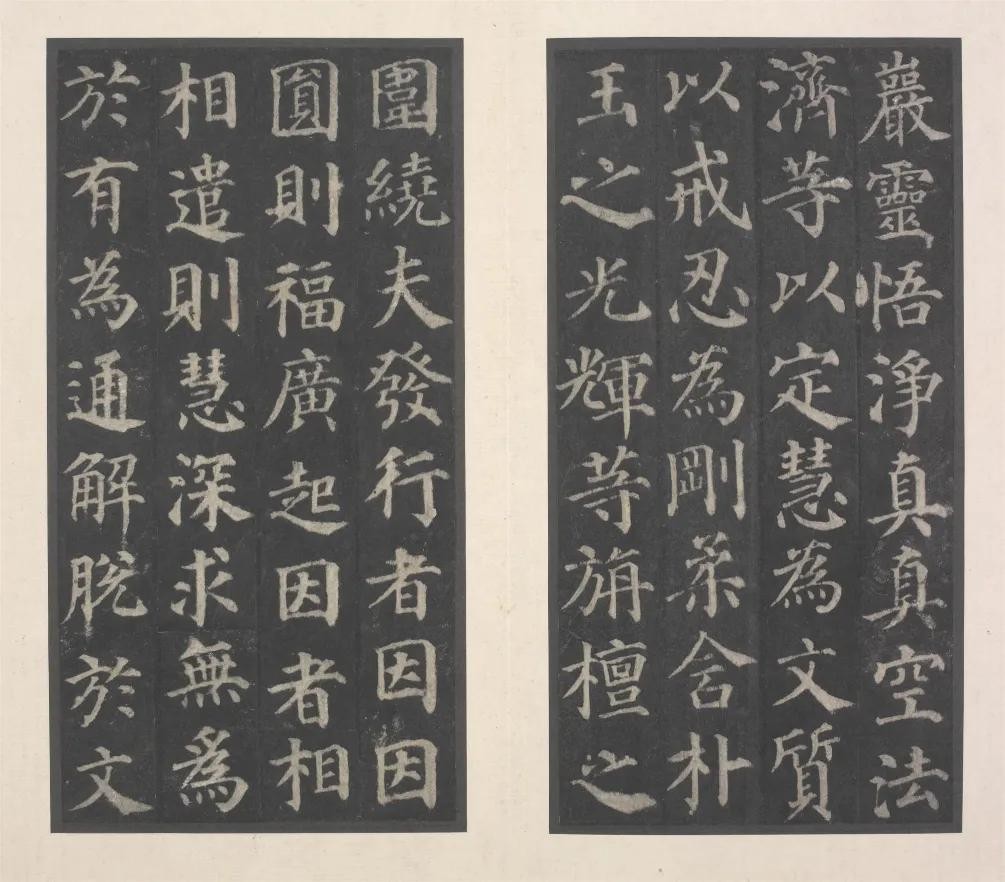 巖靈悟淨真真空法
濟等以定慧為文質
以戒忍為剛柔含朴
玉之光輝等旃檀之
圍繞夫發行者因因
圓則福廣起因者相
相遣則慧深求無爲
於有為通解脫於文